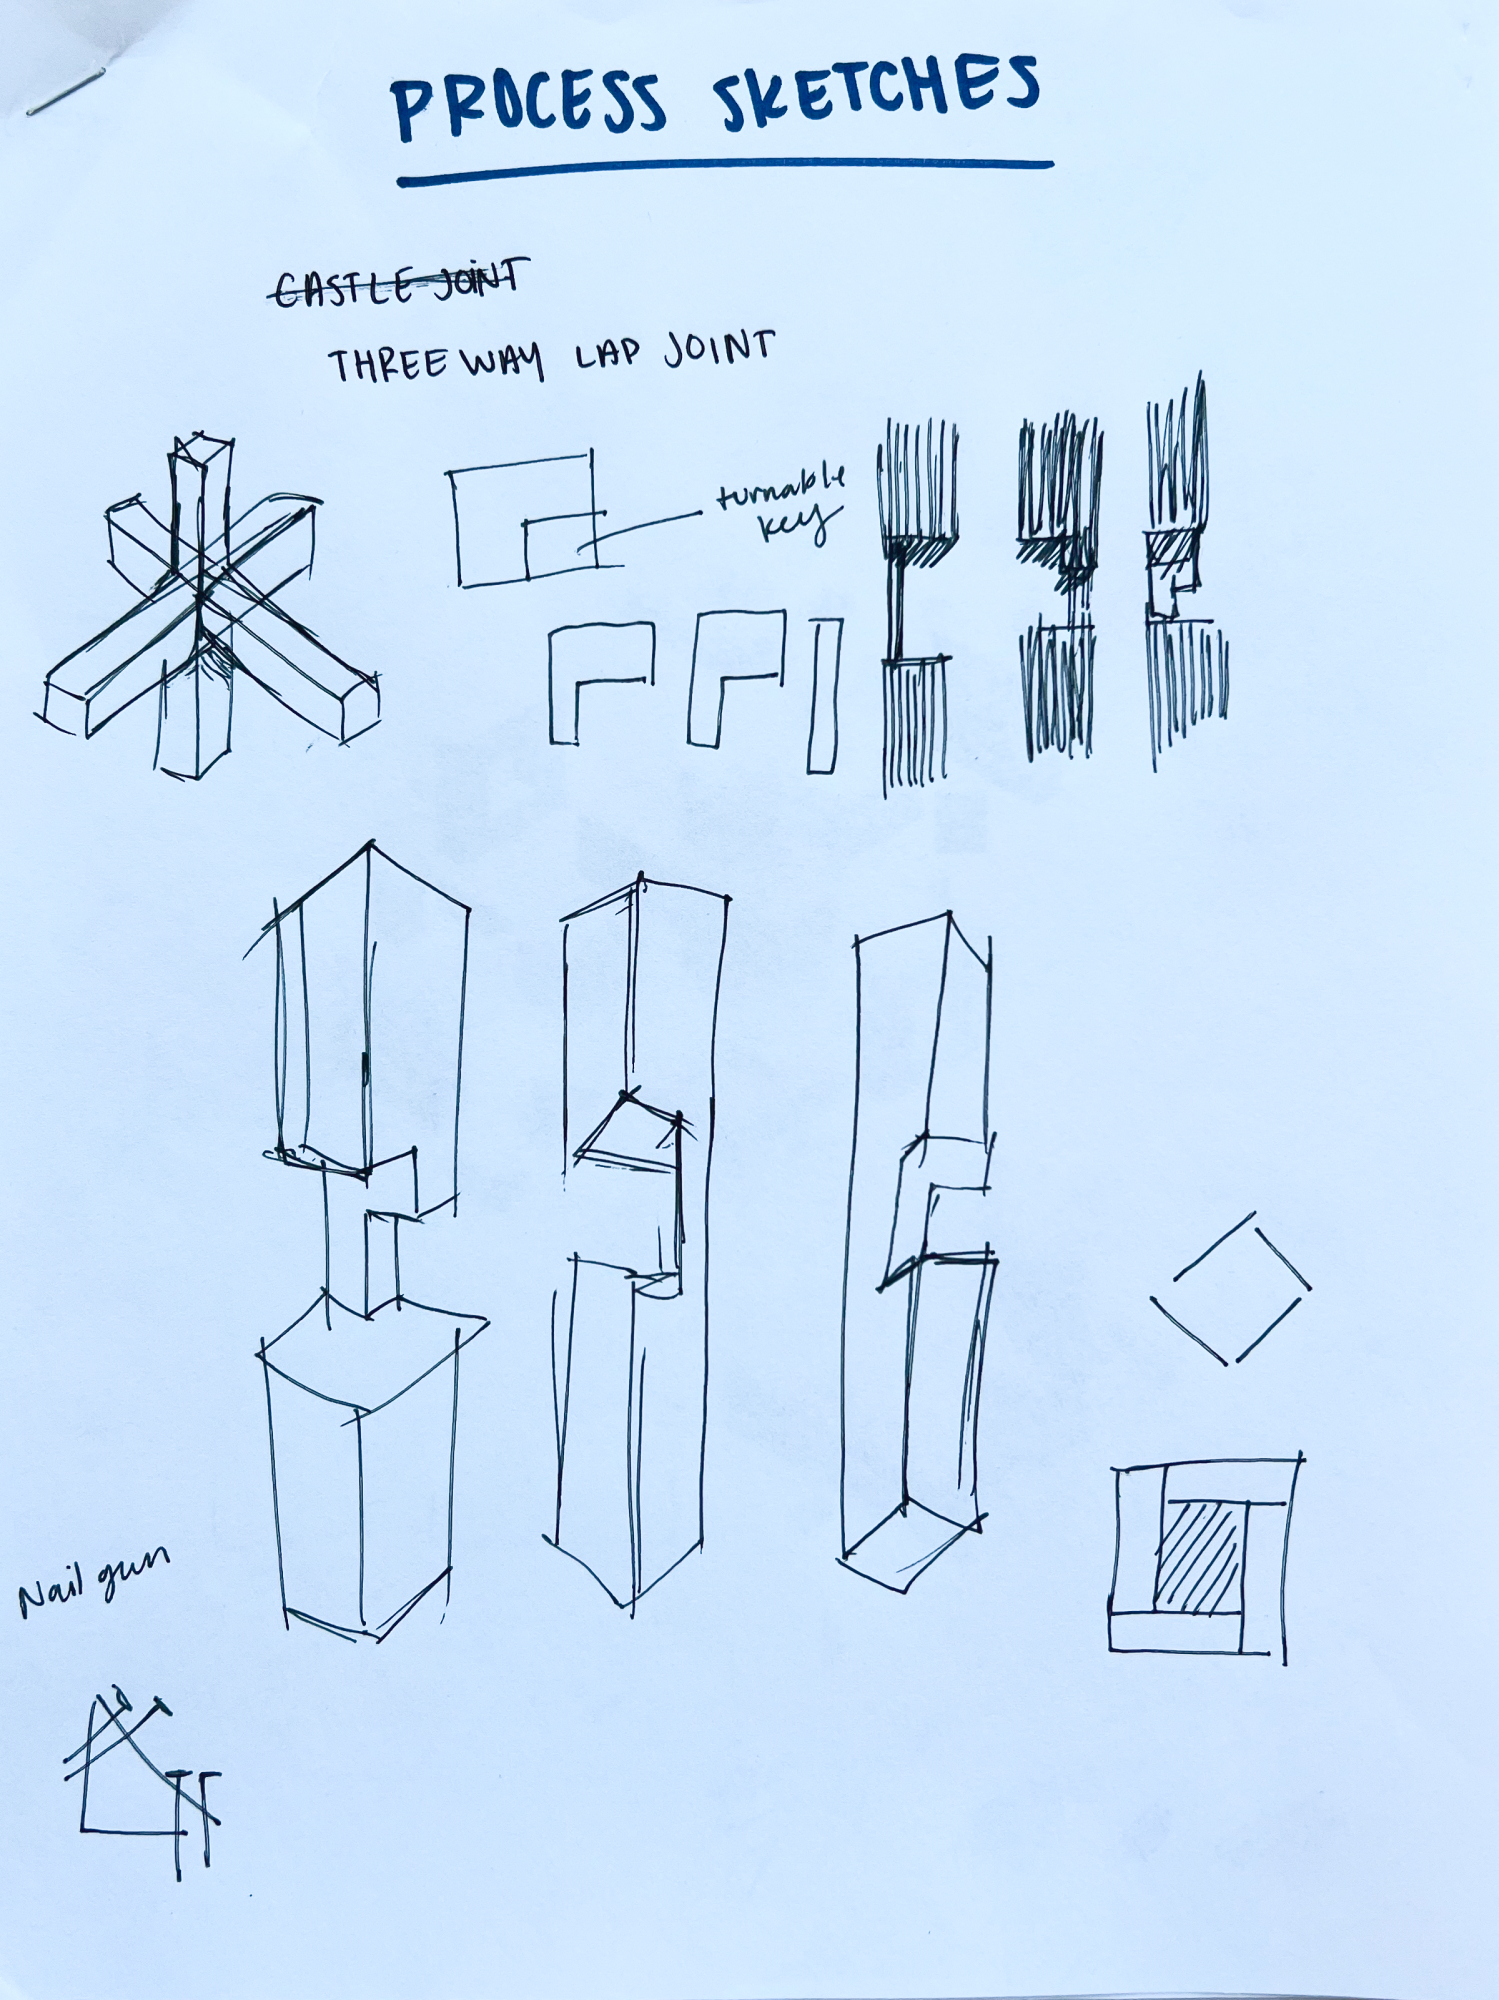 PROCESS SKETCHES
CASTLE JOINT
THREE WAY LAP JOINT
turnable
key
Nail gun